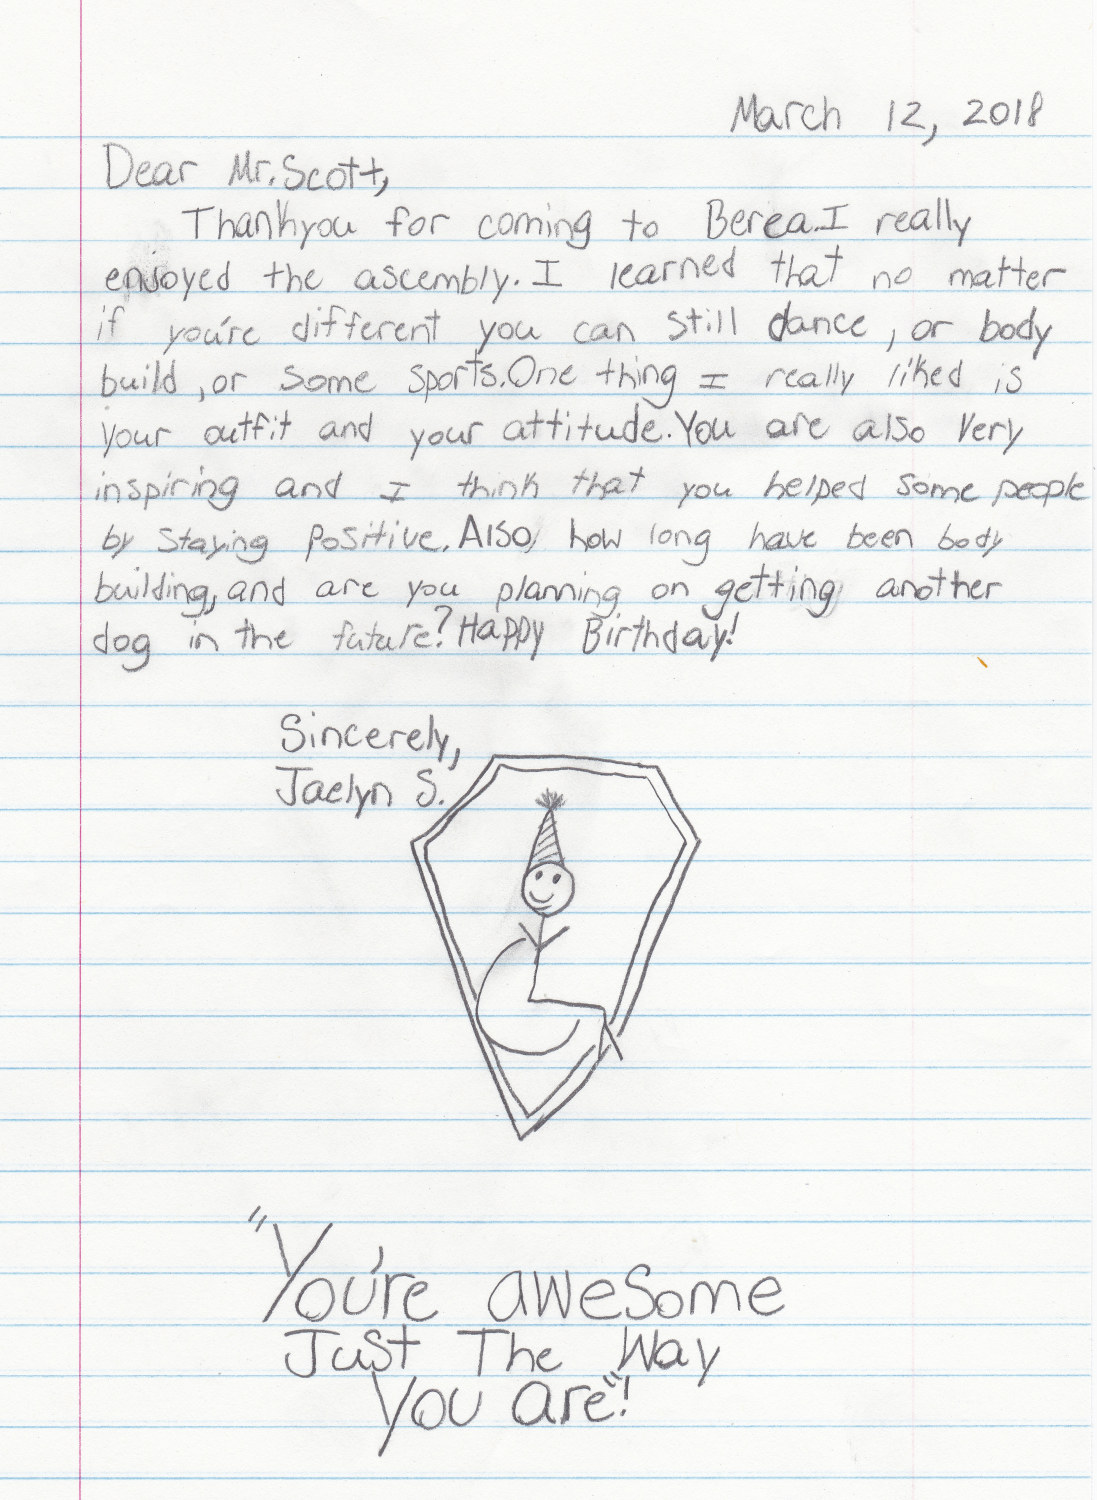 March 12, 2018
Dear Mr. Scott,
Thankyou for coming to Berea. I really
enjoyed the ascembly. I learned that no matter
if you're different you can still dance, or body
build, or some sports. One thing I really liked is
your outfit and your attitude. You are also very
inspiring and I think that you helped some people
by staying positive. Also, how long have been body
building, and are you planning on getting another
dog in the future? Happy Birthday!
Sincerely,
Jaelyn S.
"You're awesome
Just The Way
You are"!